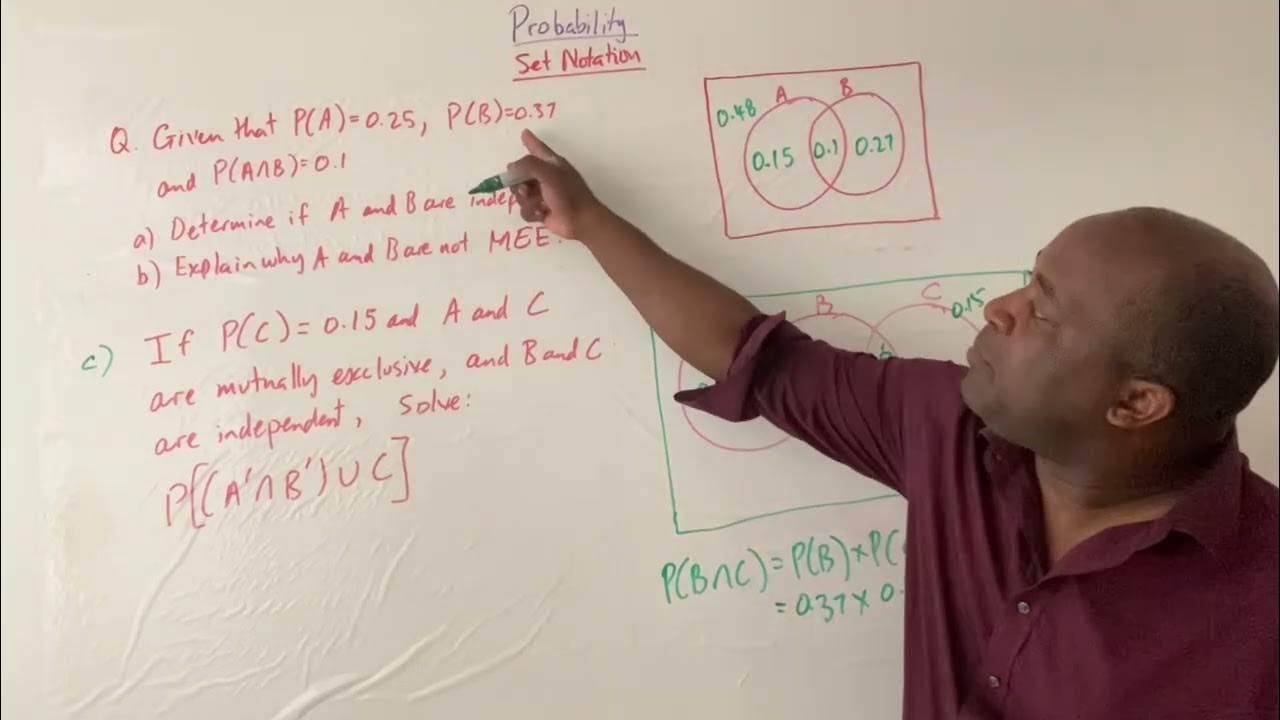 Probability
Set Notation
Q. Given that P(A)=0.25, P(B)=0.37
and P(A∩B)=0.1
a) Determine if A and B are indep
b) Explain why A and B are not MEE.
c) If P(C)=0.15 and A and C
are mutually exclusive, and B and C
are independent, Solve:
P[(A'∩B')∪C]
A B
0.48
0.15 0.1 0.27
B C
0.15
P(B∩C)=P(B)×P(
=0.37×0.